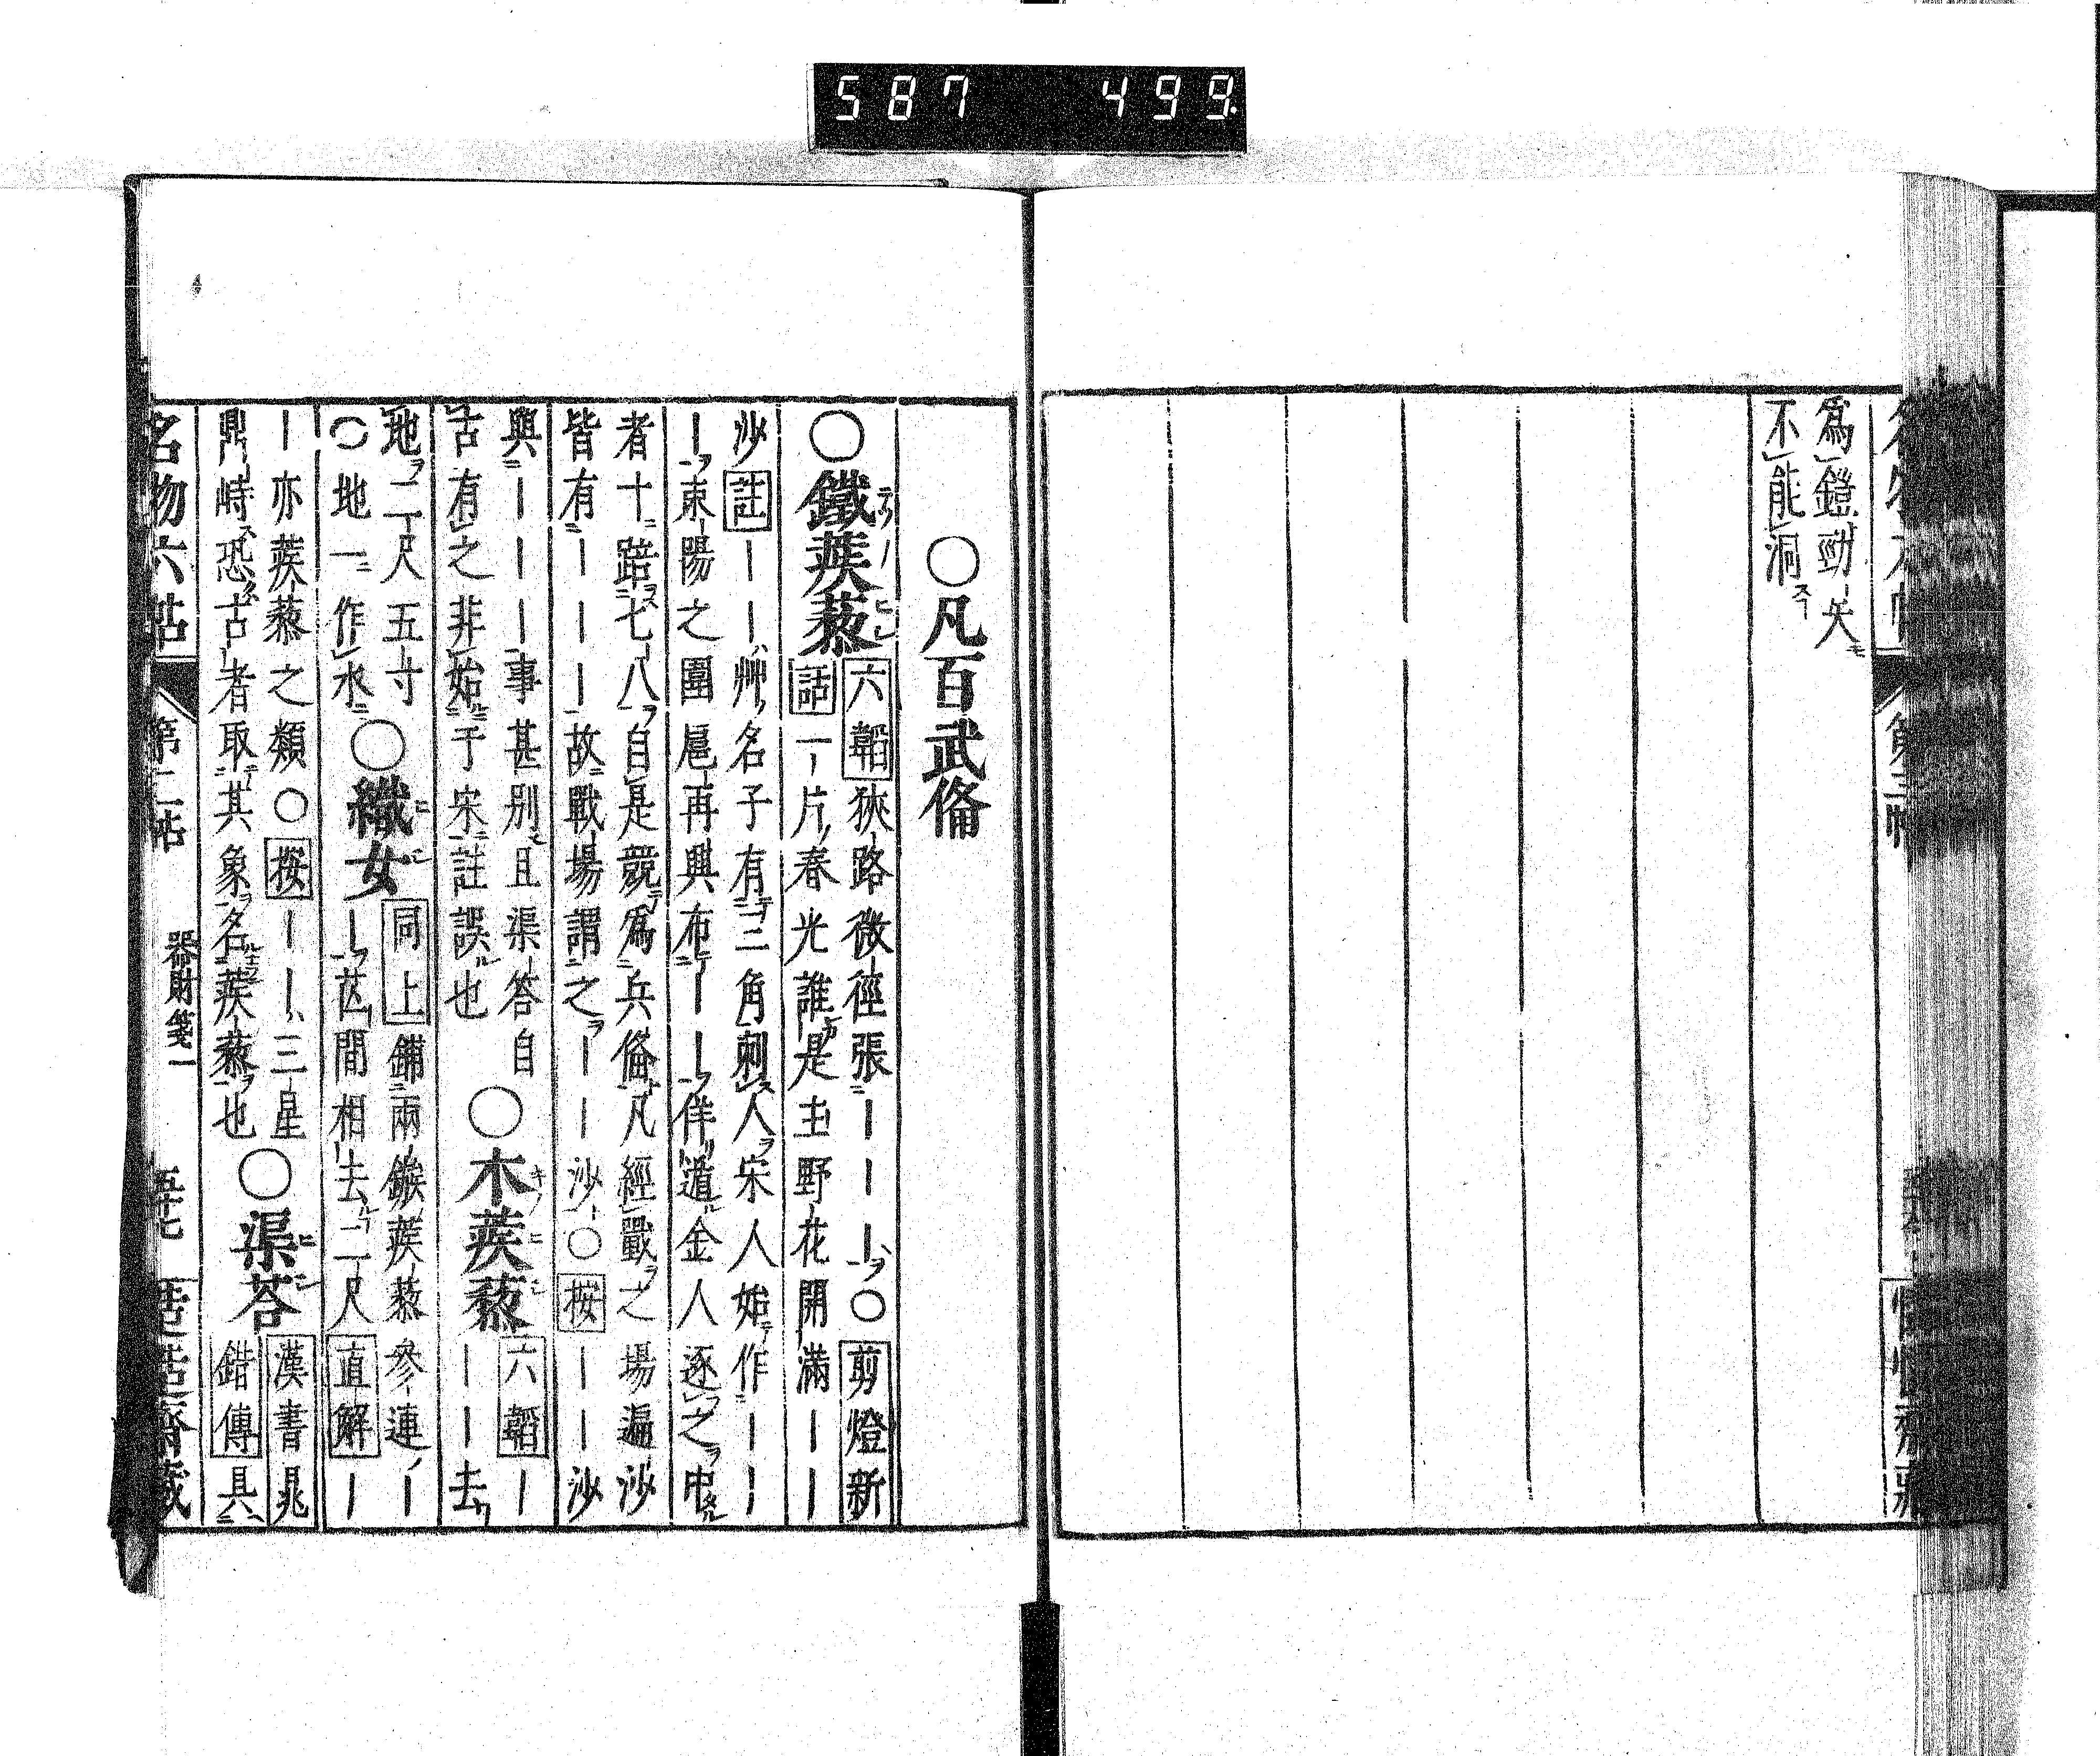 587 499
爲鎧勁矢
不能洞
○凡百武俻
○鐵蒺藜
六韜狹路微徑張｜｜｜○剪燈新
話一片春光誰是主野花開滿｜｜
沙註｜｜艸名子有三角刺人宋人始作｜｜
｜東陽之圍扈再興布｜｜｜佯遁金人逐之中
者十踣七八自是競爲兵俻凡經戰之場遍沙
皆有｜｜｜故戰場謂之｜｜沙○按｜｜沙
與｜｜｜事甚別且渠答自
古有之非始于宋註誤也
○木蒺藜
六韜｜
｜｜去
地二尺五寸
○地一作水
○織女
同上鋪兩鏃蒺藜參連｜
｜芒間相去二尺直解｜
｜亦蒺藜之類○按｜｜三星
鼎峙恐古者取其象名蒺藜也
○渠荅
漢書晁
錯傳具
名物六帖 第二帖 器財箋一 五十七